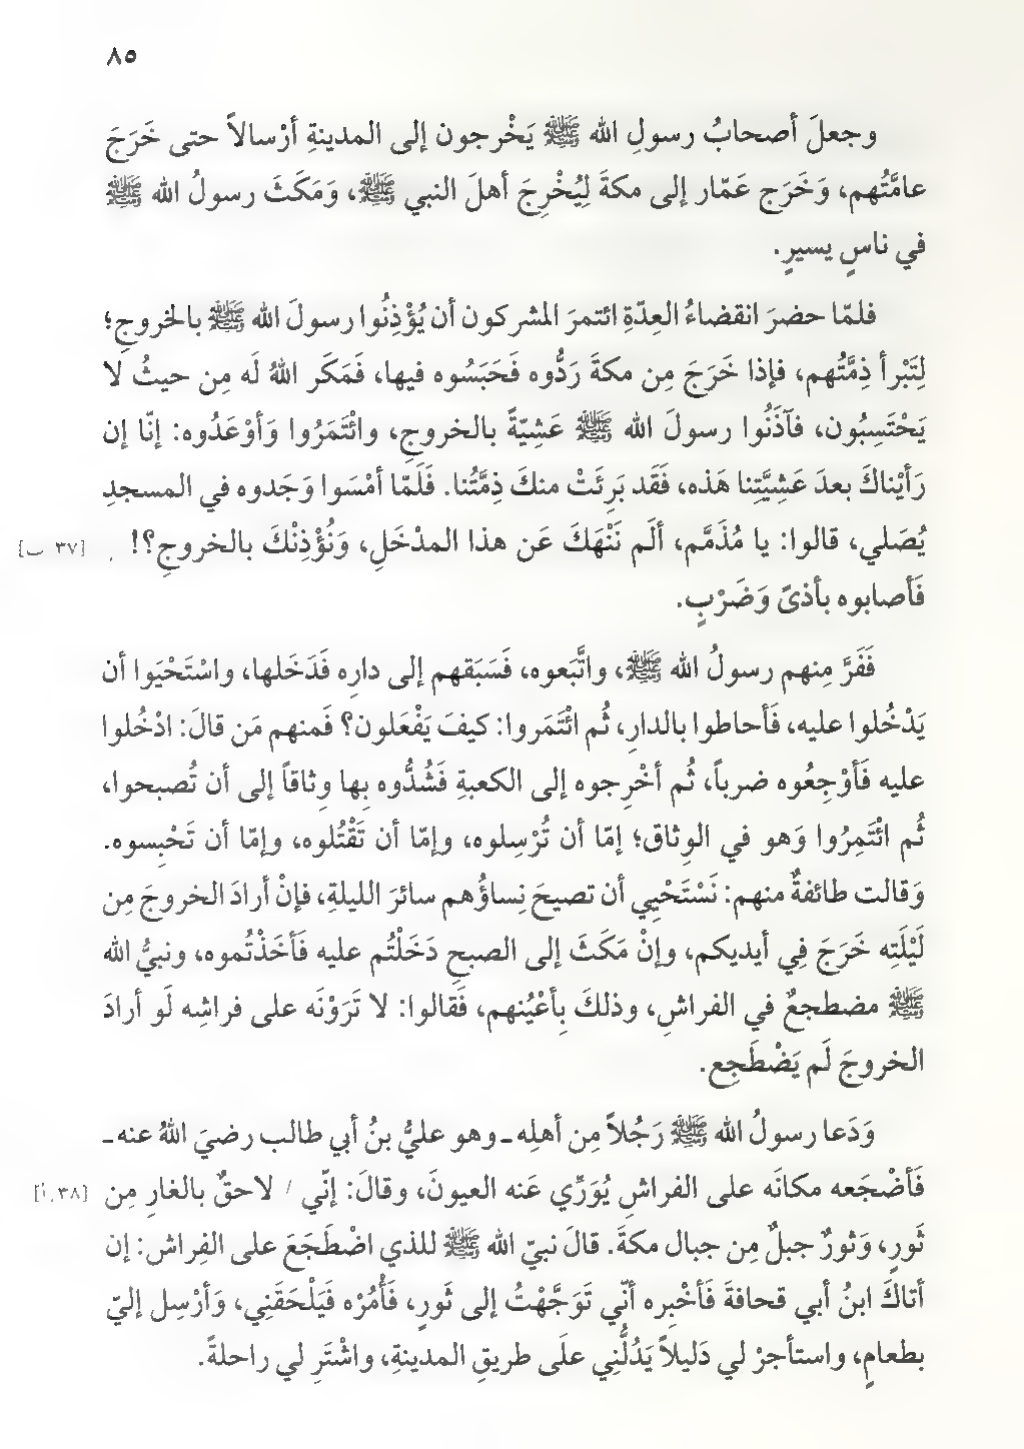 ٨٥
وجعلَ أصحابُ رسولِ الله ﷺ يَخْرجون إلى المدينةِ أرْسالاً حتى خَرَجَ
عامَّتُهم، وَخَرَج عَمّار إلى مكةَ لِيُخْرِجَ أهلَ النبي ﷺ، وَمَكَثَ رسولُ الله ﷺ
في ناسٍ يسيرٍ.
فلمّا حضرَ انقضاءُ العِدّةِ ائتمرَ المشركون أن يُؤْذِنُوا رسولَ الله ﷺ بالخروجِ؛
لِتَبْرأ ذِمَّتُهم، فإذا خَرَجَ مِن مكةَ رَدُّوه فَحَبَسُوه فيها، فَمَكَر اللهُ لَه مِن حيثُ لا
يَحْتَسِبُون، فآذَنُوا رسولَ الله ﷺ عَشِيّةً بالخروجِ، وائْتَمَرُوا وَأوْعَدُوه: إنّا إن
رَأيْناكَ بعدَ عَشِيَّتِنا هَذه، فَقَد بَرِئَتْ منكَ ذِمَّتُنا. فَلَمّا أمْسَوا وَجَدوه في المسجدِ
يُصَلي، قالوا: يا مُذَمَّم، ألَم نَنْهَكَ عَن هذا المدْخَلِ، وَنُؤْذِنْكَ بالخروجِ؟! [٣٧ ب]
فَأصابوه بأذىً وَضَرْبٍ.
فَفَرَّ مِنهم رسولُ الله ﷺ، واتَّبَعوه، فَسَبَقهم إلى دارِه فَدَخَلها، واسْتَحْيَوا أن
يَدْخُلوا عليه، فَأحاطوا بالدارِ، ثُم ائْتَمَروا: كيفَ يَفْعَلون؟ فَمنهم مَن قالَ: ادْخُلوا
عليه فَأوْجِعُوه ضرباً، ثُم أخْرِجوه إلى الكعبةِ فَشُدُّوه بِها وِثاقاً إلى أن تُصبحوا،
ثُم ائْتَمِرُوا وَهو في الوِثاق؛ إمّا أن تُرْسِلوه، وإمّا أن تَقْتُلوه، وإمّا أن تَحْبِسوه.
وَقالت طائفةٌ منهم: نَسْتَحْيِي أن تصيحَ نِساؤُهم سائرَ الليلةِ، فإنْ أرادَ الخروجَ مِن
لَيْلَتِه خَرَجَ فِي أيديكم، وإنْ مَكَثَ إلى الصبحِ دَخَلْتُم عليه فَأخَذْتُموه، ونبيُّ الله
ﷺ مضطجعٌ في الفراشِ، وذلكَ بِأعْيُنهم، فَقالوا: لا تَرَوْنَه على فراشِه لَو أرادَ
الخروجَ لَم يَضْطَجِع.
وَدَعا رسولُ الله ﷺ رَجُلاً مِن أهلِه ـ وهو عليُّ بنُ أبي طالب رضيَ اللهُ عنه ـ
فَأضْجَعه مكانَه على الفراشِ يُوَرِّي عَنه العيونَ، وقالَ: إنّي / لاحقٌ بالغارِ مِن [٣٨/أ]
ثَورٍ، وَثورٌ جبلٌ مِن جبال مكةَ. قالَ نبيّ الله ﷺ للذي اضْطَجَعَ على الفِراش: إن
أتاكَ ابنُ أبي قحافةَ فَأخْبِره أنّي تَوَجَّهْتُ إلى ثَورٍ، فَأْمُرْه فَيَلْحَقَنِي، وَأرْسِل إليّ
بطعامٍ، واستأجرْ لي دَليلاً يَدُلُّنِي علَى طريقِ المدينةِ، واشْتَرِ لي راحلةً.